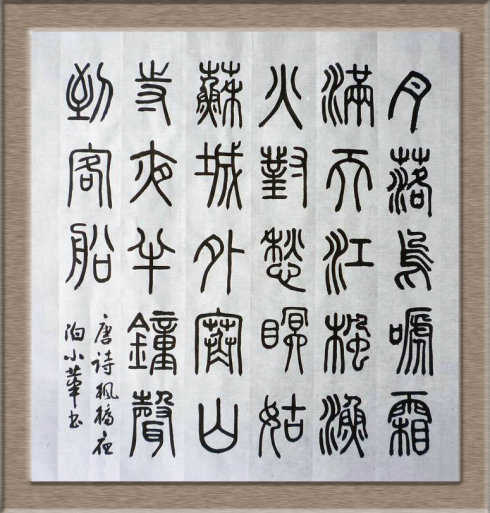 月落烏啼霜
滿天江楓漁
火對愁眠姑
蘇城外寒山
寺夜半鐘聲
到客船
唐诗枫橋夜
泊小華书